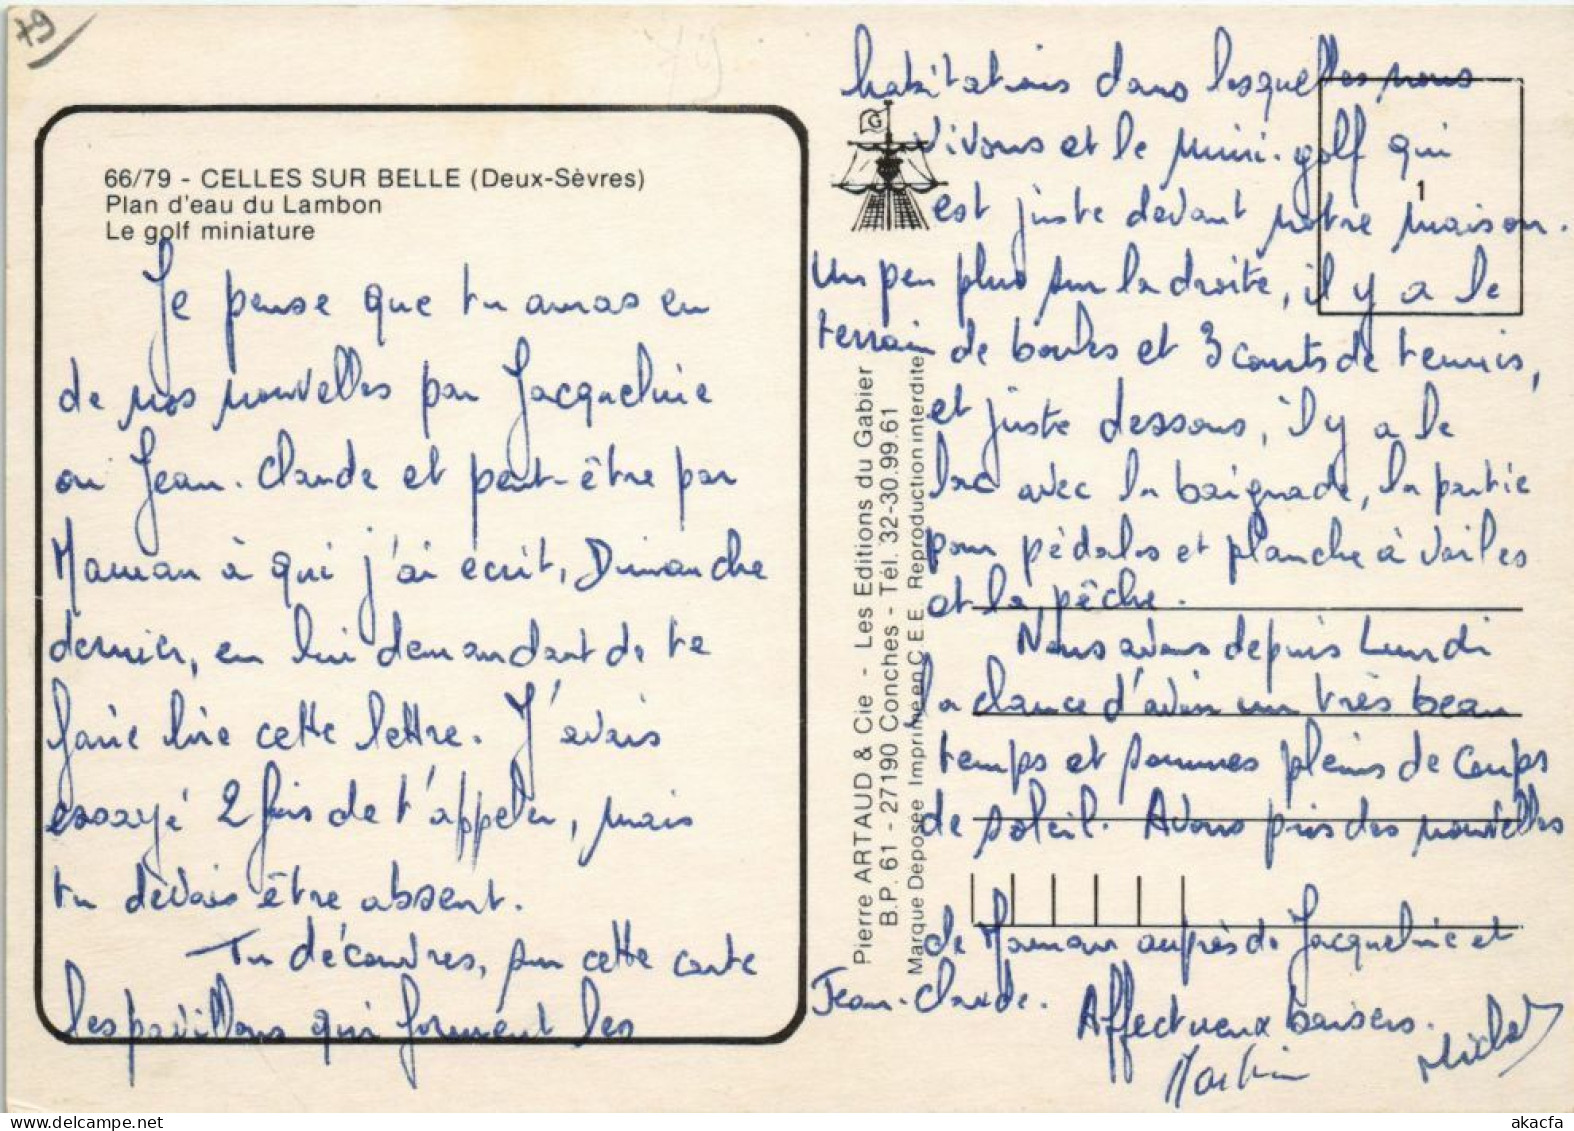 79
66/79 - CELLES SUR BELLE (Deux-Sèvres)
Plan d'eau du Lambon
Le golf miniature
Je pense que tu auras eu
de nos nouvelles par Jacqueline
ou Jean-Claude et peut-être par
Maman à qui j'ai écrit, Dimanche
dernier, en lui demandant de te
faire lire cette lettre. J'avais
essayé 2 fois de t'appeler, mais
tu devais être absent.
Tu découvres, sur cette carte
les pavillons qui forment les
habitations dans lesquelles nous
vivons et le mini-golf qui
est juste devant notre maison.
Un peu plus sur la droite, il y a le
terrain de boules et 3 courts de tennis,
et juste dessous, il y a le
lac avec la baignade, la partie
pour pédalos et planche à voiles
et la pêche.
Nous avons depuis Lundi
la chance d'avoir un très beau
temps et sommes pleins de coups
de soleil. Avons pris des nouvelles
de Maman auprès de Jacqueline et
Jean-Claude.
Affectueux baisers.
Michel
G
1
Pierre ARTAUD & Cie - Les Editions du Gabier
B.P. 61 - 27190 Conches - Tél. 32-30.99.61
Marque Déposée Imprimé en C E E Reproduction interdite
akacfa